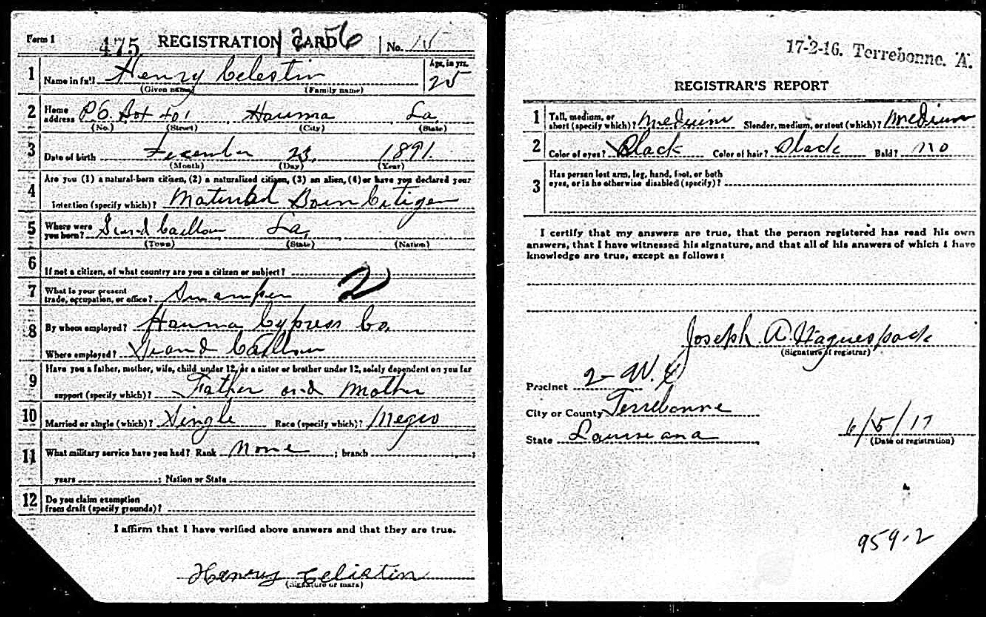 Form 1 475 REGISTRATION CARD 1256 No. 15
1 Name in full Henry Celestin Age, in yrs. 25
(Given name) (Family name)
2 Home address P.O. Box 401 Houma La
(No.) (Street) (City) (State)
3 Date of birth December 23 1891
(Month) (Day) (Year)
4 Are you (1) a natural-born citizen, (2) a naturalized citizen, (3) an alien, (4) or have you declared your
intention (specify which)? Natural Born Citizen
5 Where were you born? Grand Caillou La,
(Town) (State) (Nation)
6 If not a citizen, of what country are you a citizen or subject?
7 What is your present trade, occupation, or office? Swamper 2
8 By whom employed? Houma Cypress Co.
Where employed? Grand Caillou
9 Have you a father, mother, wife, child under 12, or a sister or brother under 12, solely dependent on you for
support (specify which)? Father and Mother
10 Married or single (which)? Single Race (specify which)? Negro
11 What military service have you had? Rank None ; branch
years ; Nation or State
12 Do you claim exemption
from draft (specify grounds)?
I affirm that I have verified above answers and that they are true.
Henry Celistin
(Signature or mark)
17-2-16. Terrebonne. A.
REGISTRAR'S REPORT
1 Tall, medium, or short (specify which)? Medium Slender, medium, or stout (which)? Medium
2 Color of eyes? Black Color of hair? Black Bald? no
3 Has person lost arm, leg, hand, foot, or both
eyes, or is he otherwise disabled (specify)?
I certify that my answers are true, that the person registered has read his own
answers, that I have witnessed his signature, and that all of his answers of which I have
knowledge are true, except as follows:
Joseph A. Haguespack
(Signature of registrar)
Precinct 2-W.
City or County Terrebonne
State Louiseana 6/5/17
(Date of registration)
959-2